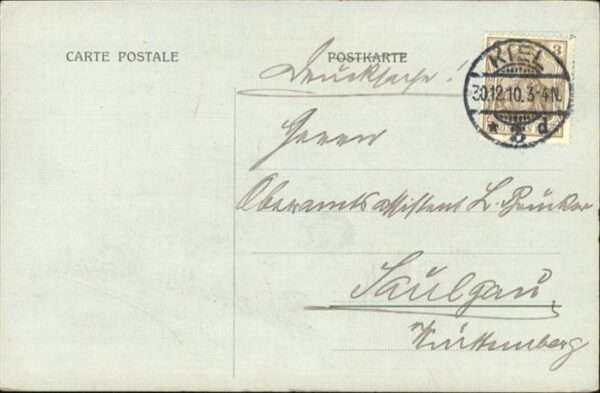 CARTE POSTALE
POSTKARTE
Drucksache!
KIEL
30.12.10. 3-4N.
* 3 d
3
Herrn
Oberamtsassistent L. Brucker
Saulgau,
Württemberg